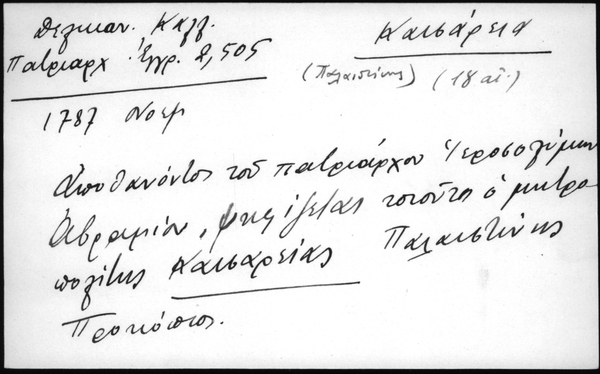 Δελικαν. Καλλ.
Πατριαρχ. Έγγρ. 2,505
Καισάρεια
(Παλαιστίνης) (18 αἰ.)
1787 Νοεμ
Ἀποθανόντος τοῦ πατριάρχου Ἱεροσολύμων
Ἀβραμίου, ψηφίζεται τοιοῦτος ὁ μητρο
πολίτης Καισαρείας Παλαιστίνης
Προκόπιος.